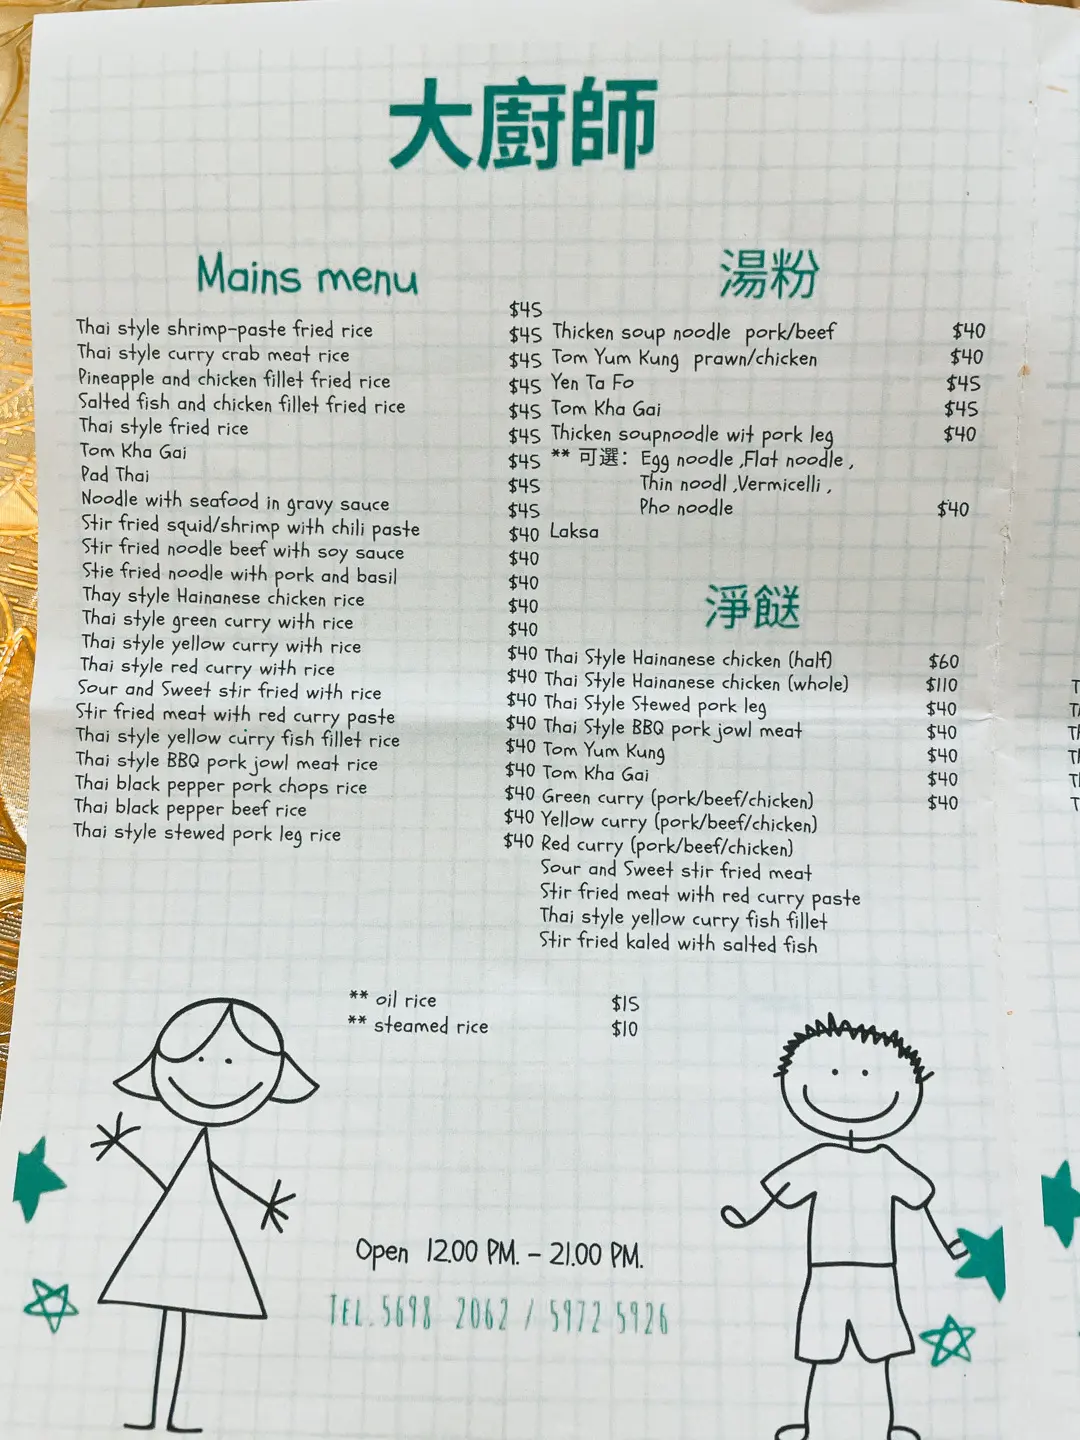 大廚師
Mains menu
Thai style shrimp-paste fried rice
Thai style curry crab meat rice
Pineapple and chicken fillet fried rice
Salted fish and chicken fillet fried rice
Thai style fried rice
Tom Kha Gai
Pad Thai
Noodle with seafood in gravy sauce
Stir fried squid/shrimp with chili paste
Stir fried noodle beef with soy sauce
Stie fried noodle with pork and basil
Thay style Hainanese chicken rice
Thai style green curry with rice
Thai style yellow curry with rice
Thai style red curry with rice
Sour and Sweet stir fried with rice
Stir fried meat with red curry paste
Thai style yellow curry fish fillet rice
Thai style BBQ pork jowl meat rice
Thai black pepper pork chops rice
Thai black pepper beef rice
Thai style stewed pork leg rice
$45
$45
$45
$45
$45
$45
$45
$45
$45
$40
$40
$40
$40
$40
$40
$40
$40
$40
$40
$40
$40
$40
$40
湯粉
Thicken soup noodle pork/beef $40
Tom Yum Kung prawn/chicken $40
Yen Ta Fo $45
Tom Kha Gai $45
Thicken soupnoodle wit pork leg $40
** 可選: Egg noodle ,Flat noodle ,
Thin noodl ,Vermicelli ,
Pho noodle $40
Laksa
淨餸
Thai Style Hainanese chicken (half) $60
Thai Style Hainanese chicken (whole) $110
Thai Style Stewed pork leg $40
Thai Style BBQ pork jowl meat $40
Tom Yum Kung $40
Tom Kha Gai $40
Green curry (pork/beef/chicken) $40
Yellow curry (pork/beef/chicken)
Red curry (pork/beef/chicken)
Sour and Sweet stir fried meat
Stir fried meat with red curry paste
Thai style yellow curry fish fillet
Stir fried kaled with salted fish
** oil rice $15
** steamed rice $10
Open 12.00 PM. - 21.00 PM.
TEL.5698 2062 / 5972 5926